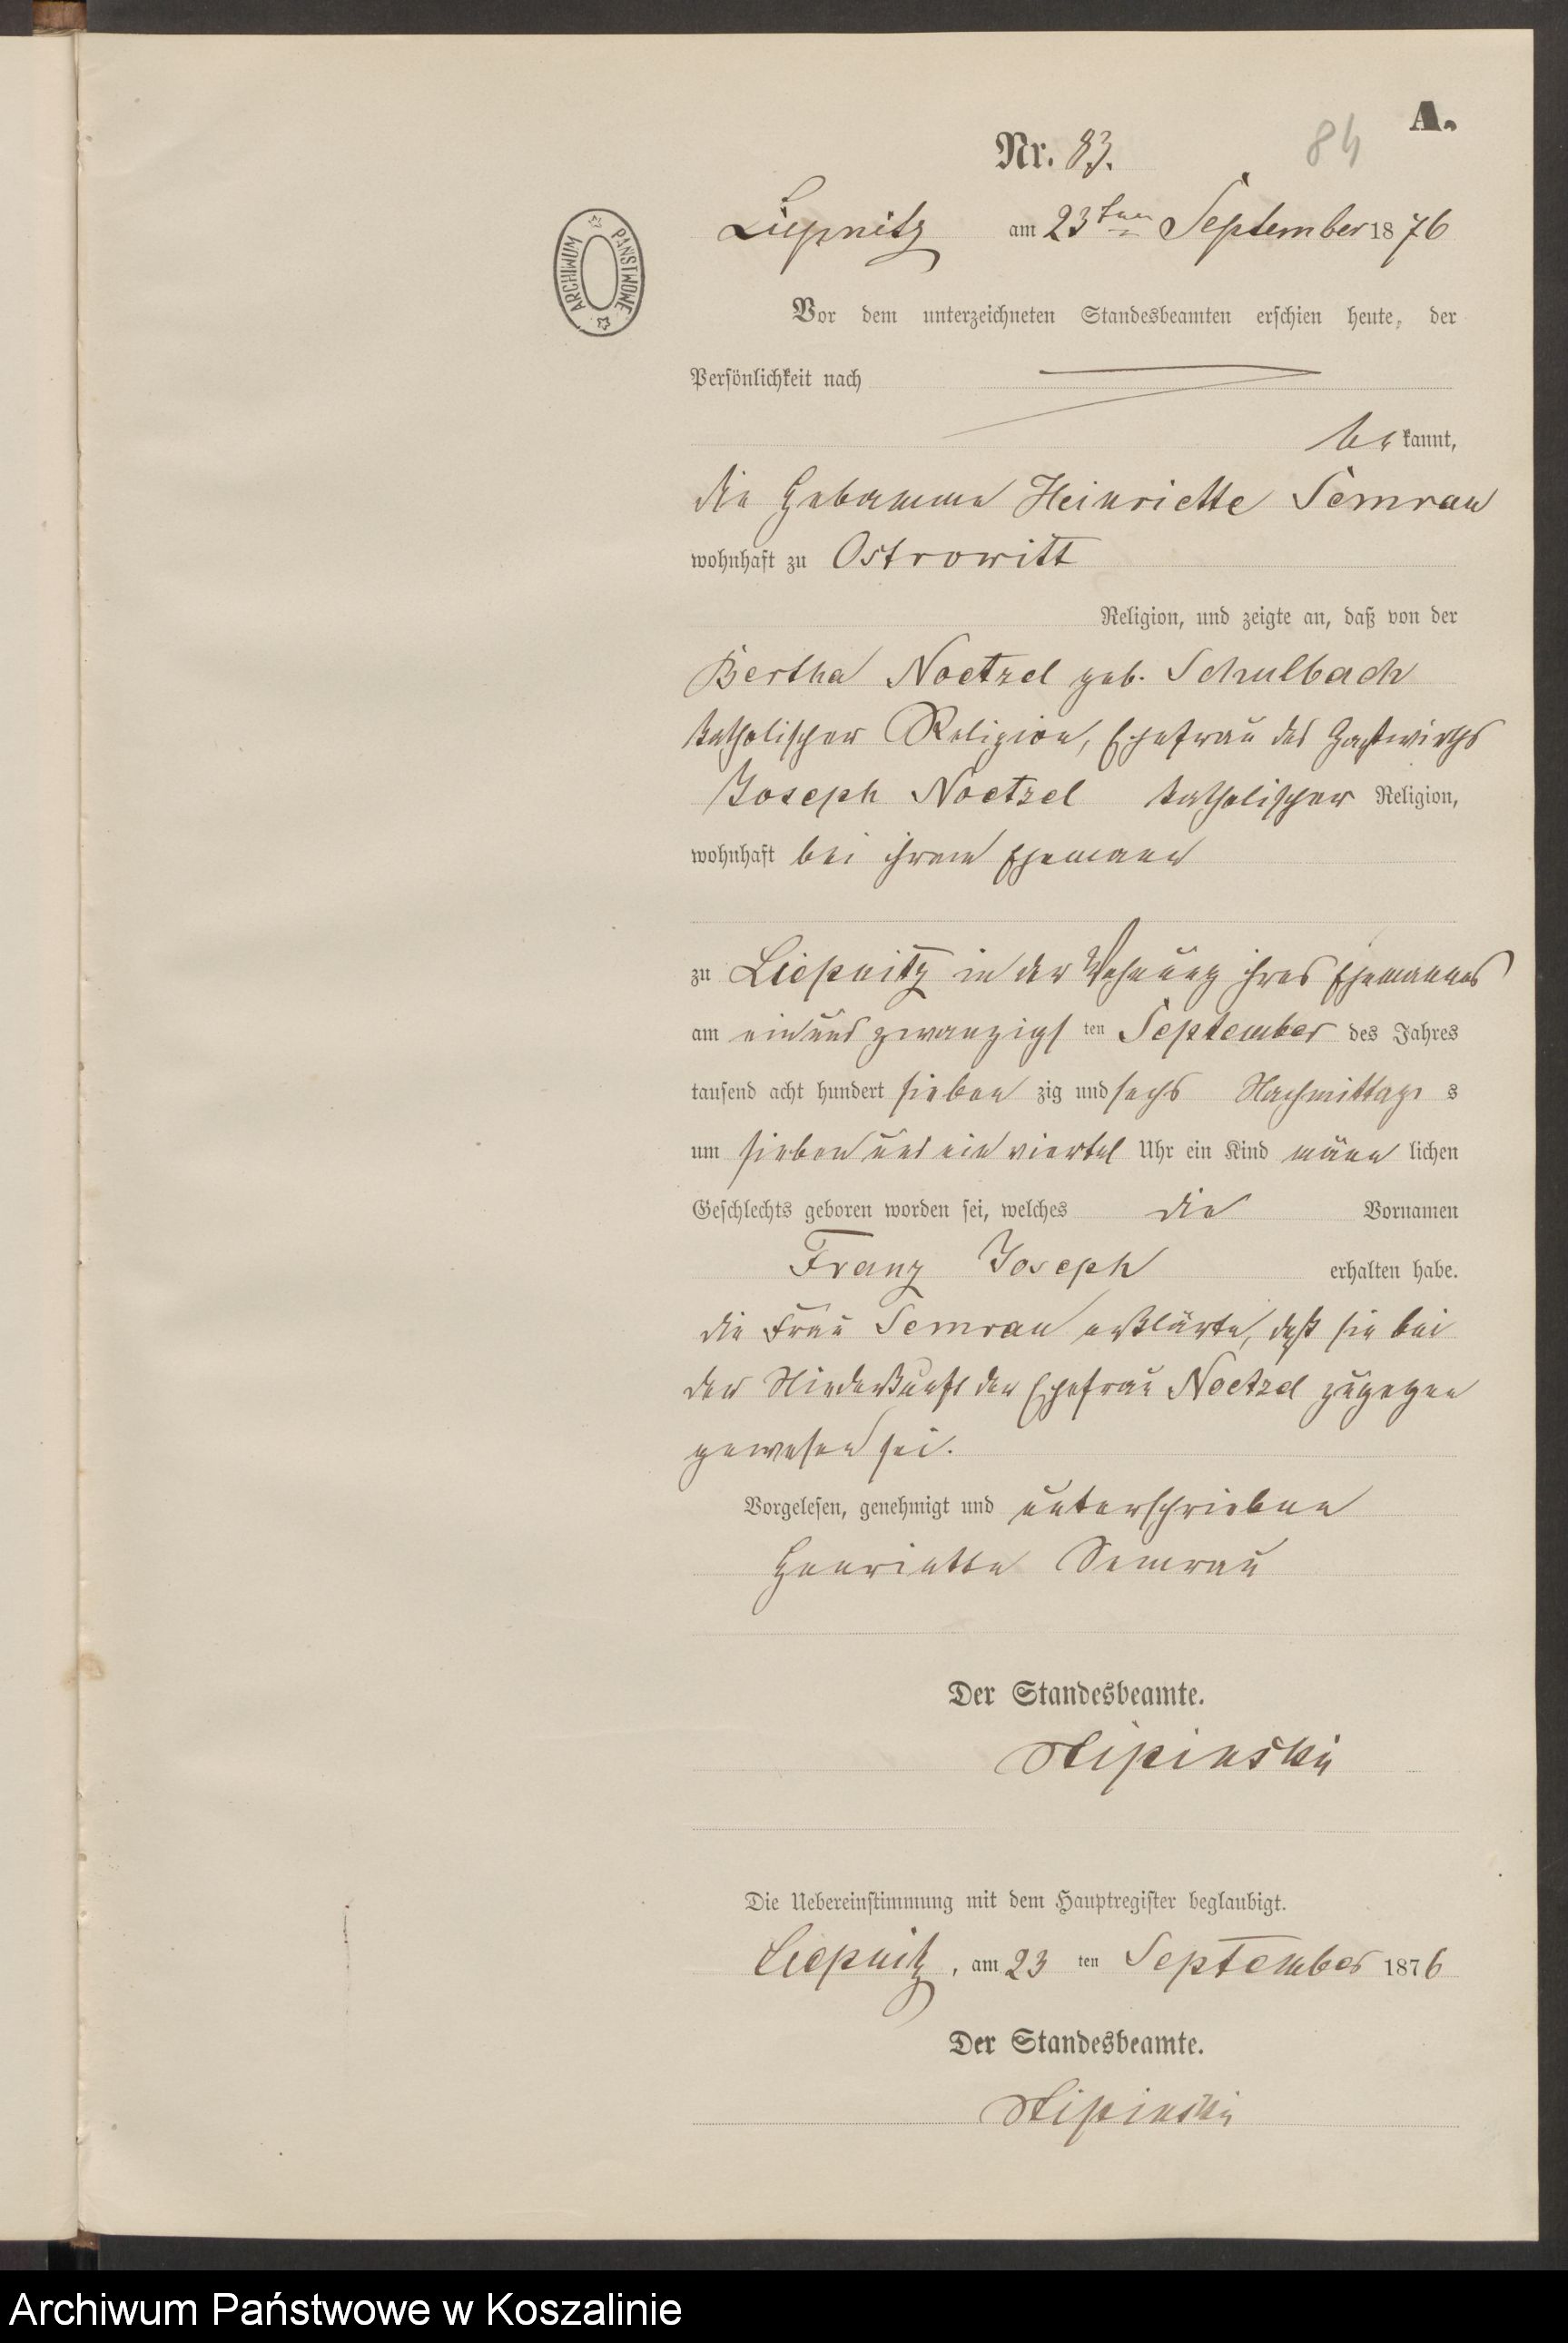 A.
Nr. 83.
84
Liepnitz am 23ten September 1876
ARCHIWUM PAŃSTWOWE
Vor dem unterzeichneten Standesbeamten erschien heute, der
Persönlichkeit nach
be kannt,
die Hebamme Heinriette Semrau
wohnhaft zu Ostrowitt
Religion, und zeigte an, daß von der
Bertha Noetzel geb. Schulbach
katholischer Religion, Ehefrau des Gastwirths
Joseph Noetzel katholischer Religion,
wohnhaft bei ihrem Ehemann
zu Liepnitz in der Wohnung ihres Ehemannes
am einund zwanzigs ten September des Jahres
tausend acht hundert sieben zig und sechs Nachmittags s
um sieben und ein viertel Uhr ein Kind männ lichen
Geschlechts geboren worden sei, welches die Vornamen
Franz Joseph erhalten habe.
die Frau Semrau erklärte, daß sie bei
der Niederkunft der Ehefrau Noetzel zugegen
gewesen sei.
Vorgelesen, genehmigt und unterschrieben
Henriette Semrau
Der Standesbeamte.
Die Uebereinstimmung mit dem Hauptregister beglaubigt.
Liepnitz, am 23 ten September 1876
Der Standesbeamte.
Archiwum Państwowe w Koszalinie